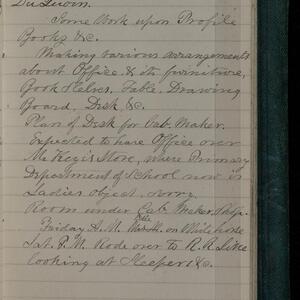 Du Luvin.
Some Work upon Profile
Books &c.
Making various arrangements
about Office & its furniture,
Book Shelves, Table, Drawing
Board, Desk, &c.
Plan of Desk for Cab. Maker.
Expected to have Office over
Store, where Primary
Department of School now is
Ladies object, sorry.
Room under Cab. Maker Shop.
Friday A.M. on White horse
Sat. P.M. Rode over to R.R. Line
looking at Sleepers &c.